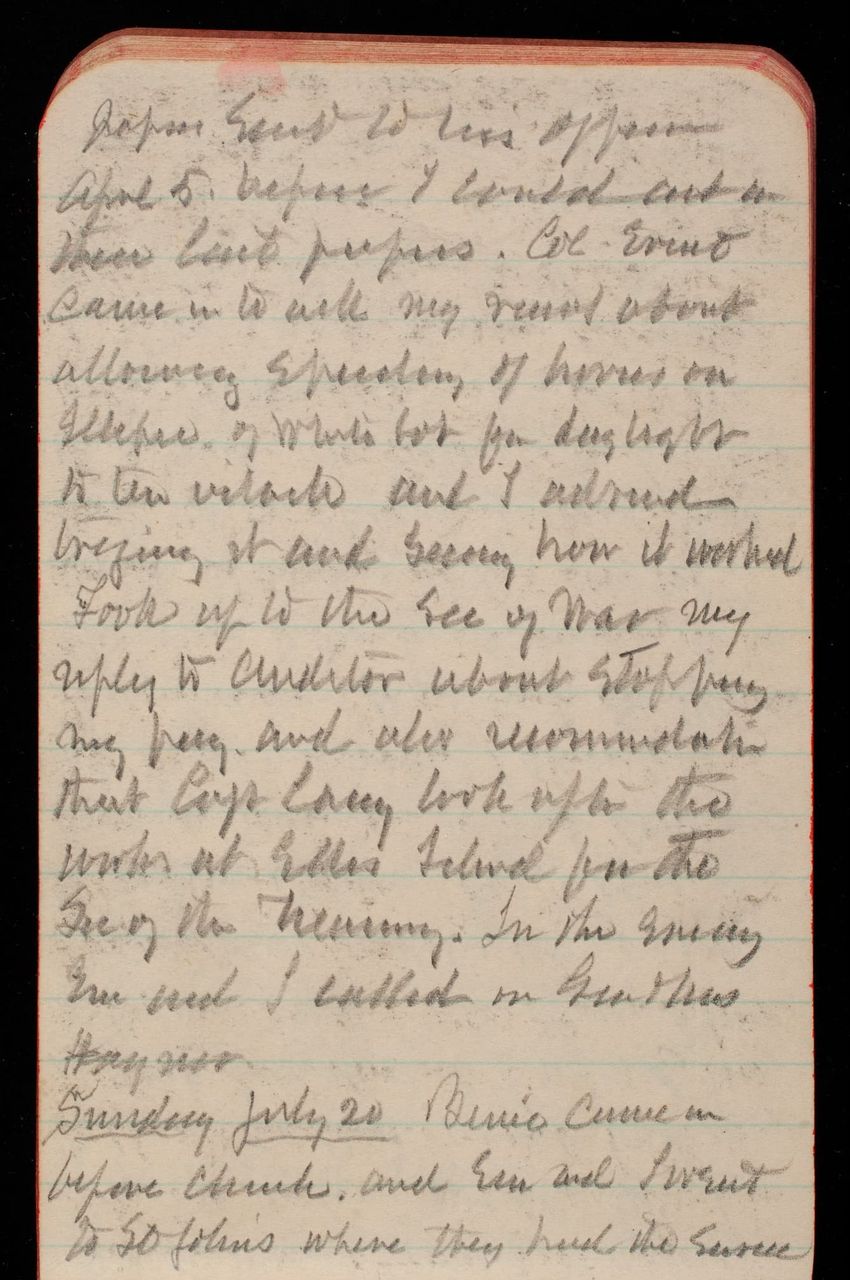 papers sent to his office
April 5. before I could act on
these last papers. Col Ernst
came in to ask my views about
allowing speeding of horses on
Ellipse of White lot for daylight
to ten o'clock and I advised
trying it and seeing how it worked
Took up to the Sec of War my
reply to Auditor about stopping
my pay. and also recommendation
that Capt Casey look after the
work at Ellis Island for the
Sec of the Treasury. In the evening
Em and I called on Gen & Mrs
Hagner
Sunday July 20 Bernie came in
before church. and Em and I went
to St John's where they had the service